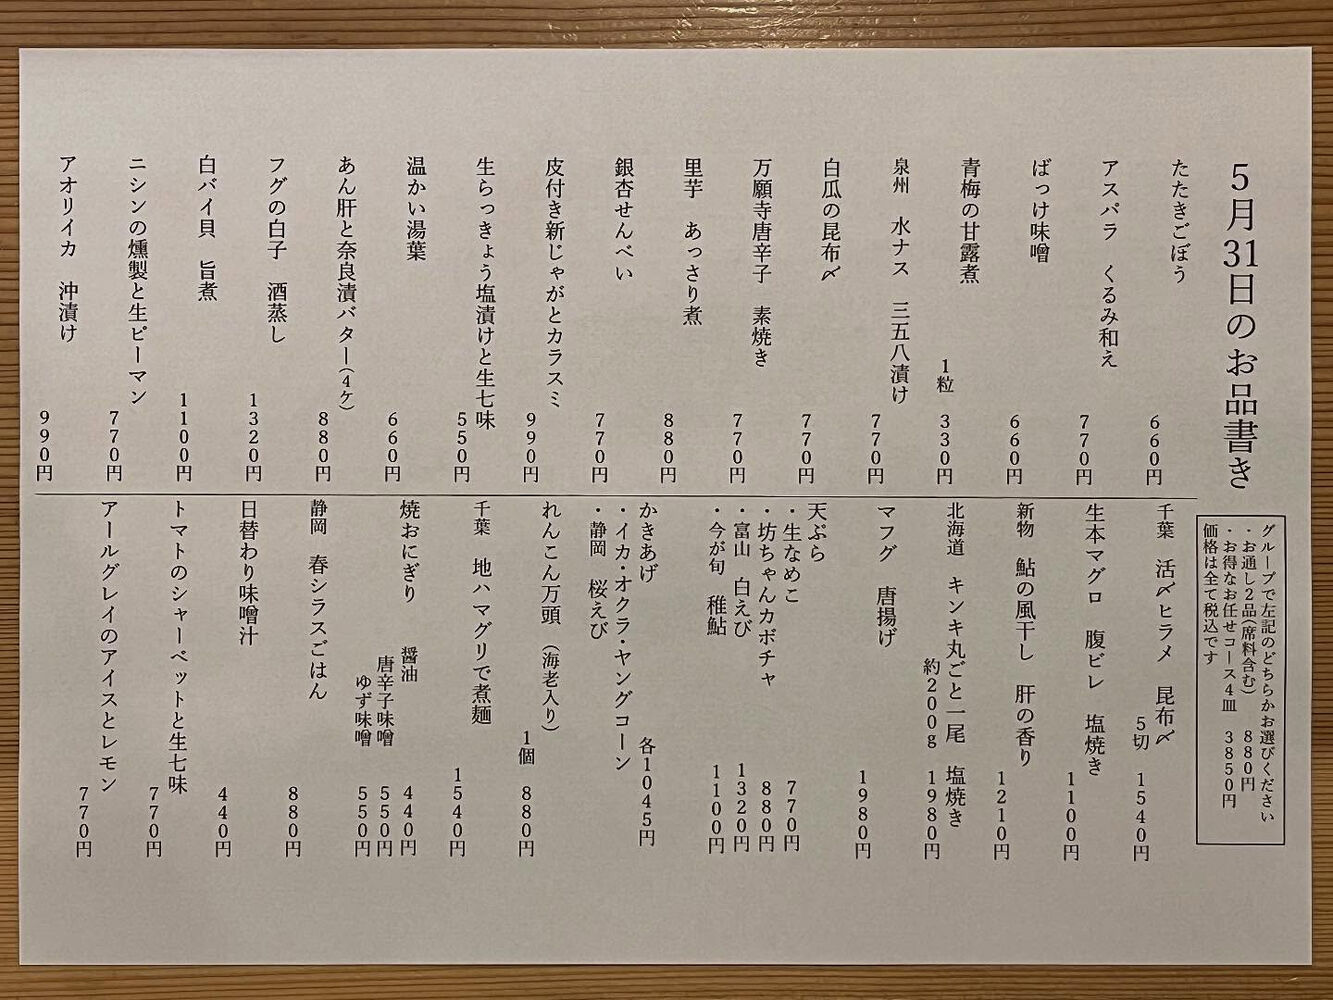 5月31日のお品書き
グループで左記のどちらかお選びください
・お通し2品(席料含む) 880円
・お得なお任せコース4皿 3850円
価格は全て税込です
たたきごぼう 660円
アスパラ くるみ和え 770円
ばっけ味噌 660円
青梅の甘露煮 1粒 330円
泉州 水ナス 三五八漬け 770円
白瓜の昆布〆 770円
万願寺唐辛子 素焼き 770円
里芋 あっさり煮 880円
銀杏せんべい 770円
皮付き新じゃがとカラスミ 990円
生らっきょう塩漬けと生七味 550円
温かい湯葉 660円
あん肝と奈良漬バター(4ケ) 880円
フグの白子 酒蒸し 1320円
白バイ貝 旨煮 1100円
ニシンの燻製と生ピーマン 770円
アオリイカ 沖漬け 990円
千葉 活〆ヒラメ 昆布〆 5切 1540円
生本マグロ 腹ビレ 塩焼き 1100円
新物 鮎の風干し 肝の香り 1210円
北海道 キンキ丸ごと一尾 塩焼き
約200g 1980円
マフグ 唐揚げ 1980円
天ぷら
・生なめこ 770円
・坊ちゃんカボチャ 880円
・富山 白えび 1320円
・今が旬 稚鮎 1100円
かきあげ 各1045円
・イカ・オクラ・ヤングコーン
・静岡 桜えび
れんこん万頭 (海老入り) 1個 880円
千葉 地ハマグリで煮麺 1540円
焼おにぎり 醤油 440円
唐辛子味噌 550円
ゆず味噌 550円
静岡 春シラスごはん 880円
日替わり味噌汁 440円
トマトのシャーベットと生七味 770円
アールグレイのアイスとレモン 770円